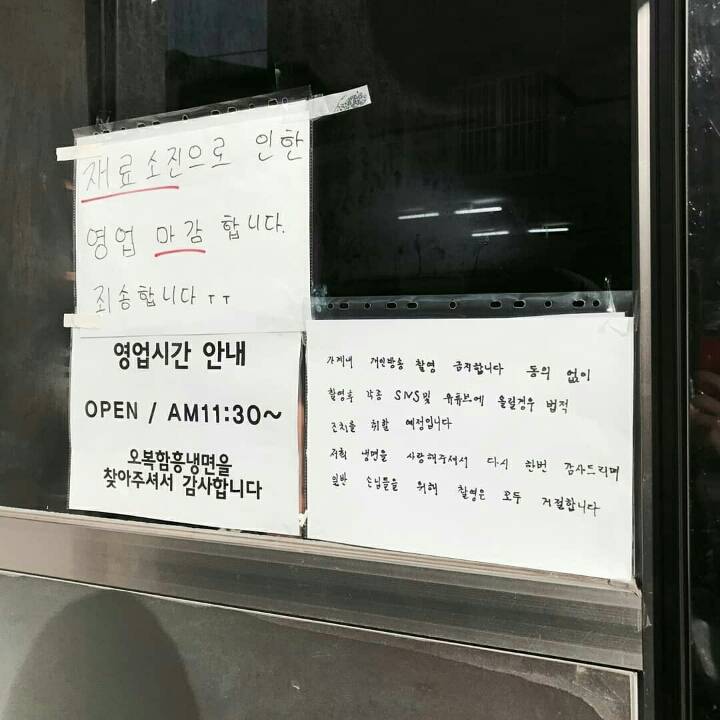 재료소진으로 인한
영업 마감 합니다.
죄송합니다 ㅜㅜ
영업시간 안내
OPEN / AM11:30~
오복함흥냉면을
찾아주셔서 감사합니다
가게내 개인방송 촬영 금지합니다 동의 없이
촬영후 각종 SNS및 유튜브에 올릴경우 법적
조치를 취할 예정입니다
저희 냉면을 사랑해주셔서 다시 한번 감사드리며
일반 손님들을 위해 촬영은 모두 거절합니다